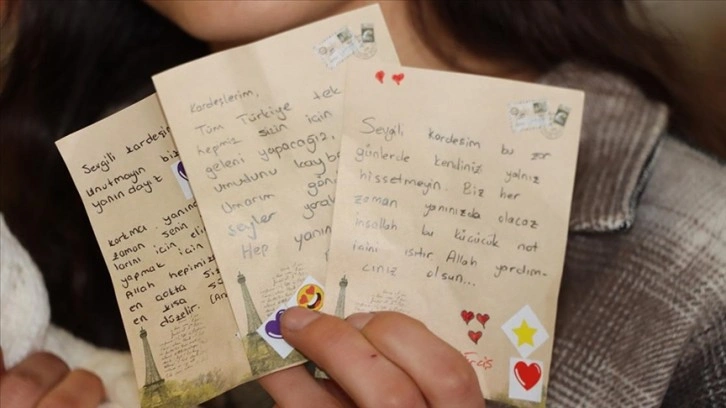 Sevgili kardeşim
unutmayın biz
yanındayız
korkma yanında
zaman senin
ların için eli
yapmak için
Allah hepimiz
en kısa
düzelir.
Kardeşlerim,
Tüm Türkiye tek
hepimiz sizin için
geleni yapacağız,
umudunu kaybe
Umarım
şeyler
Hep yanın
Sevgili kardeşim bu zor
günlerde kendinizi yalnız
hissetmeyin. Biz her
zaman yanınızda olacaz
inşallah bu küçücük not
içini ısıtır Allah yardım-
cınız olsun...